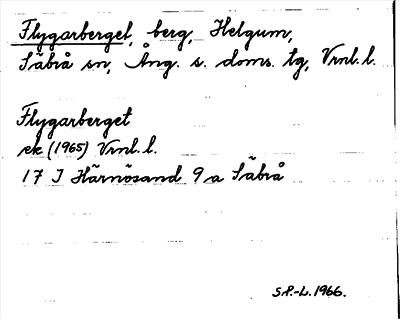 Flygarberget, berg, Helgum,
Säbrå sn, Ång. s. doms. tg, Vrnl. l.
Flygarberget
ek (1965) Vrnl. l.
17 J Härnösand 9 a Säbrå
S.P.-L. 1966.